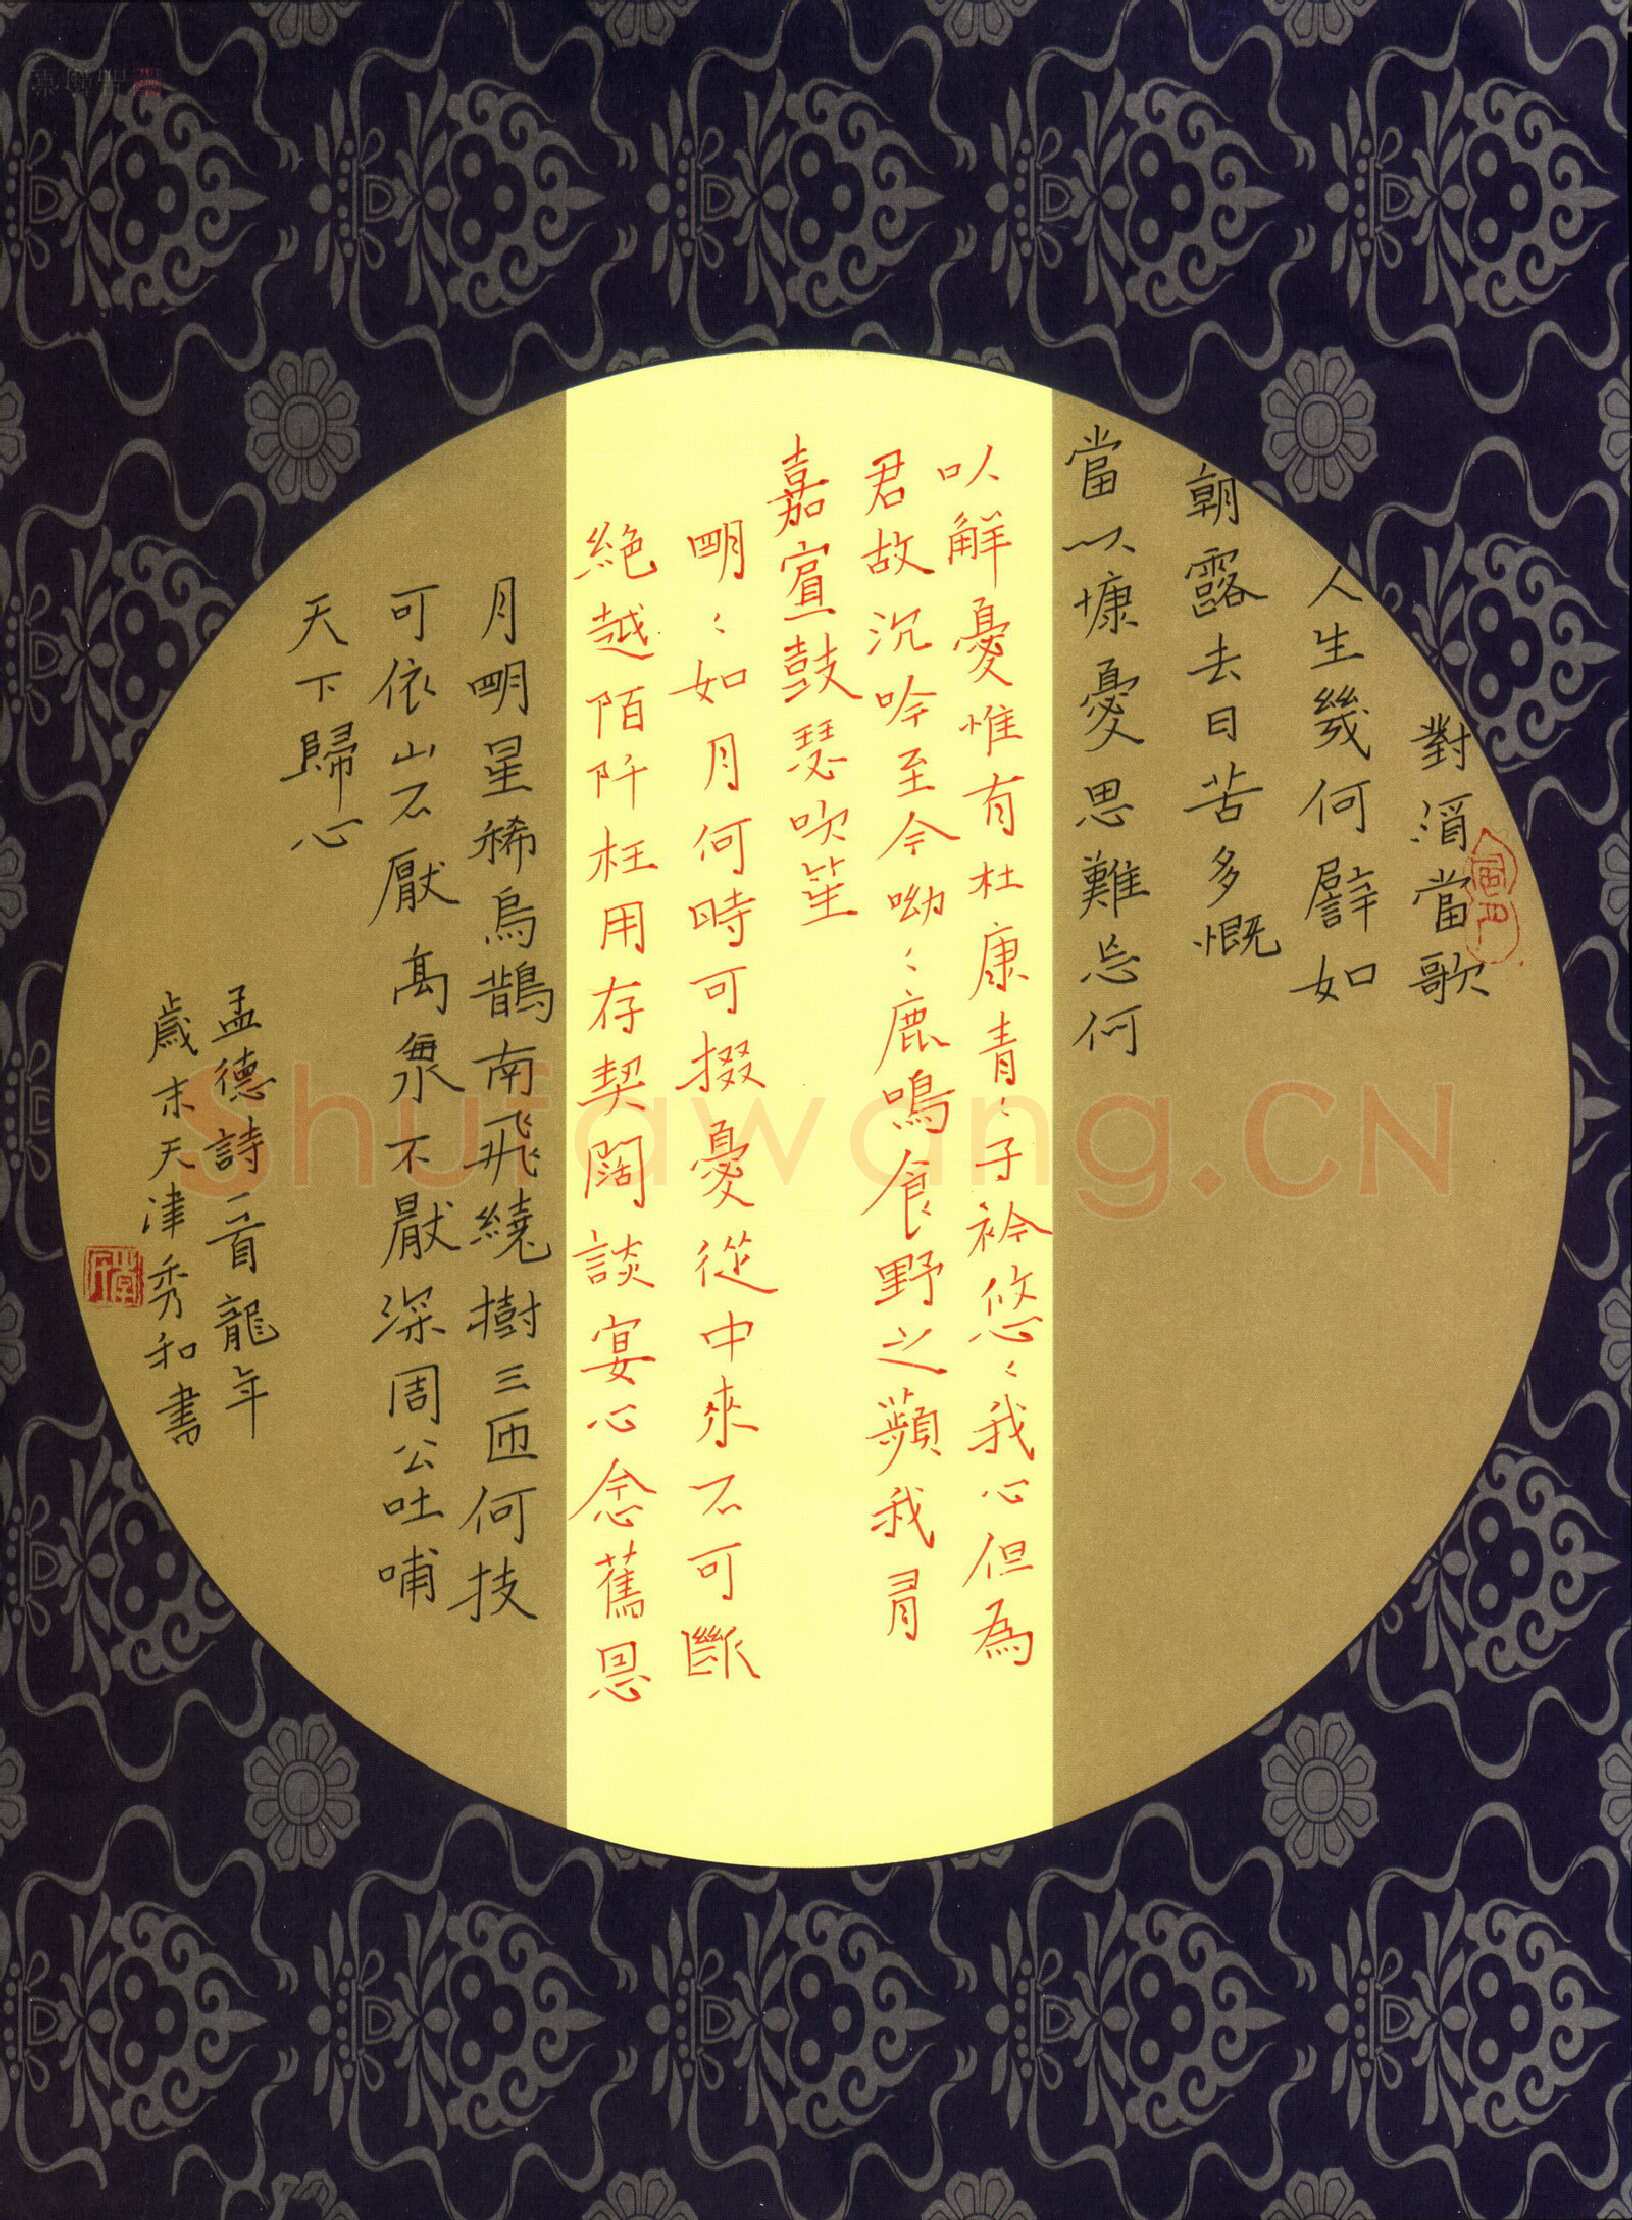 對酒當歌
人生幾何譬如
朝露去日苦多慨
當以慷憂思難忘何
以解憂惟有杜康青〻子衿悠〻我心但為
君故沉吟至今呦〻鹿鳴食野之蘋我有
嘉賓鼓瑟吹笙
明〻如月何時可掇憂從中來不可斷
絕越陌阡枉用存契闊談宴心念舊恩
月明星稀烏鵲南飛繞樹三匝何技
可依山不厭高衆不厭深周公吐哺
天下歸心
孟德詩一首龍年
歲末天津秀和書
Shufawang.CN